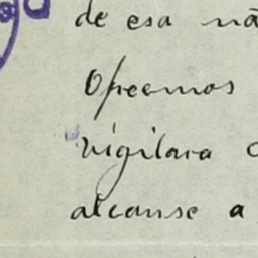 de esa
Opeemos
vigilara
alcanse a